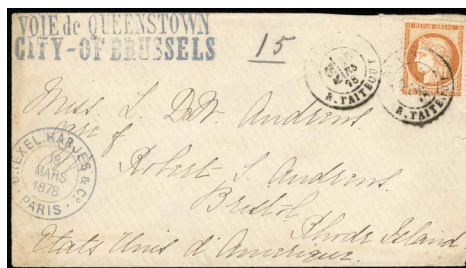 VOIE de QUEENSTOWN
CITY-OF BRUSSELS
15
MARS
R. TAITBOUT
REPUB. FRANC.
Miss. L. DeW. Andrews.
Care of
Robert S. Andrews.
Bristol,
Rhode Island
Etats Unis d'Amerique.
DREXEL, HARJES & Co.
19
MARS
1878
PARIS